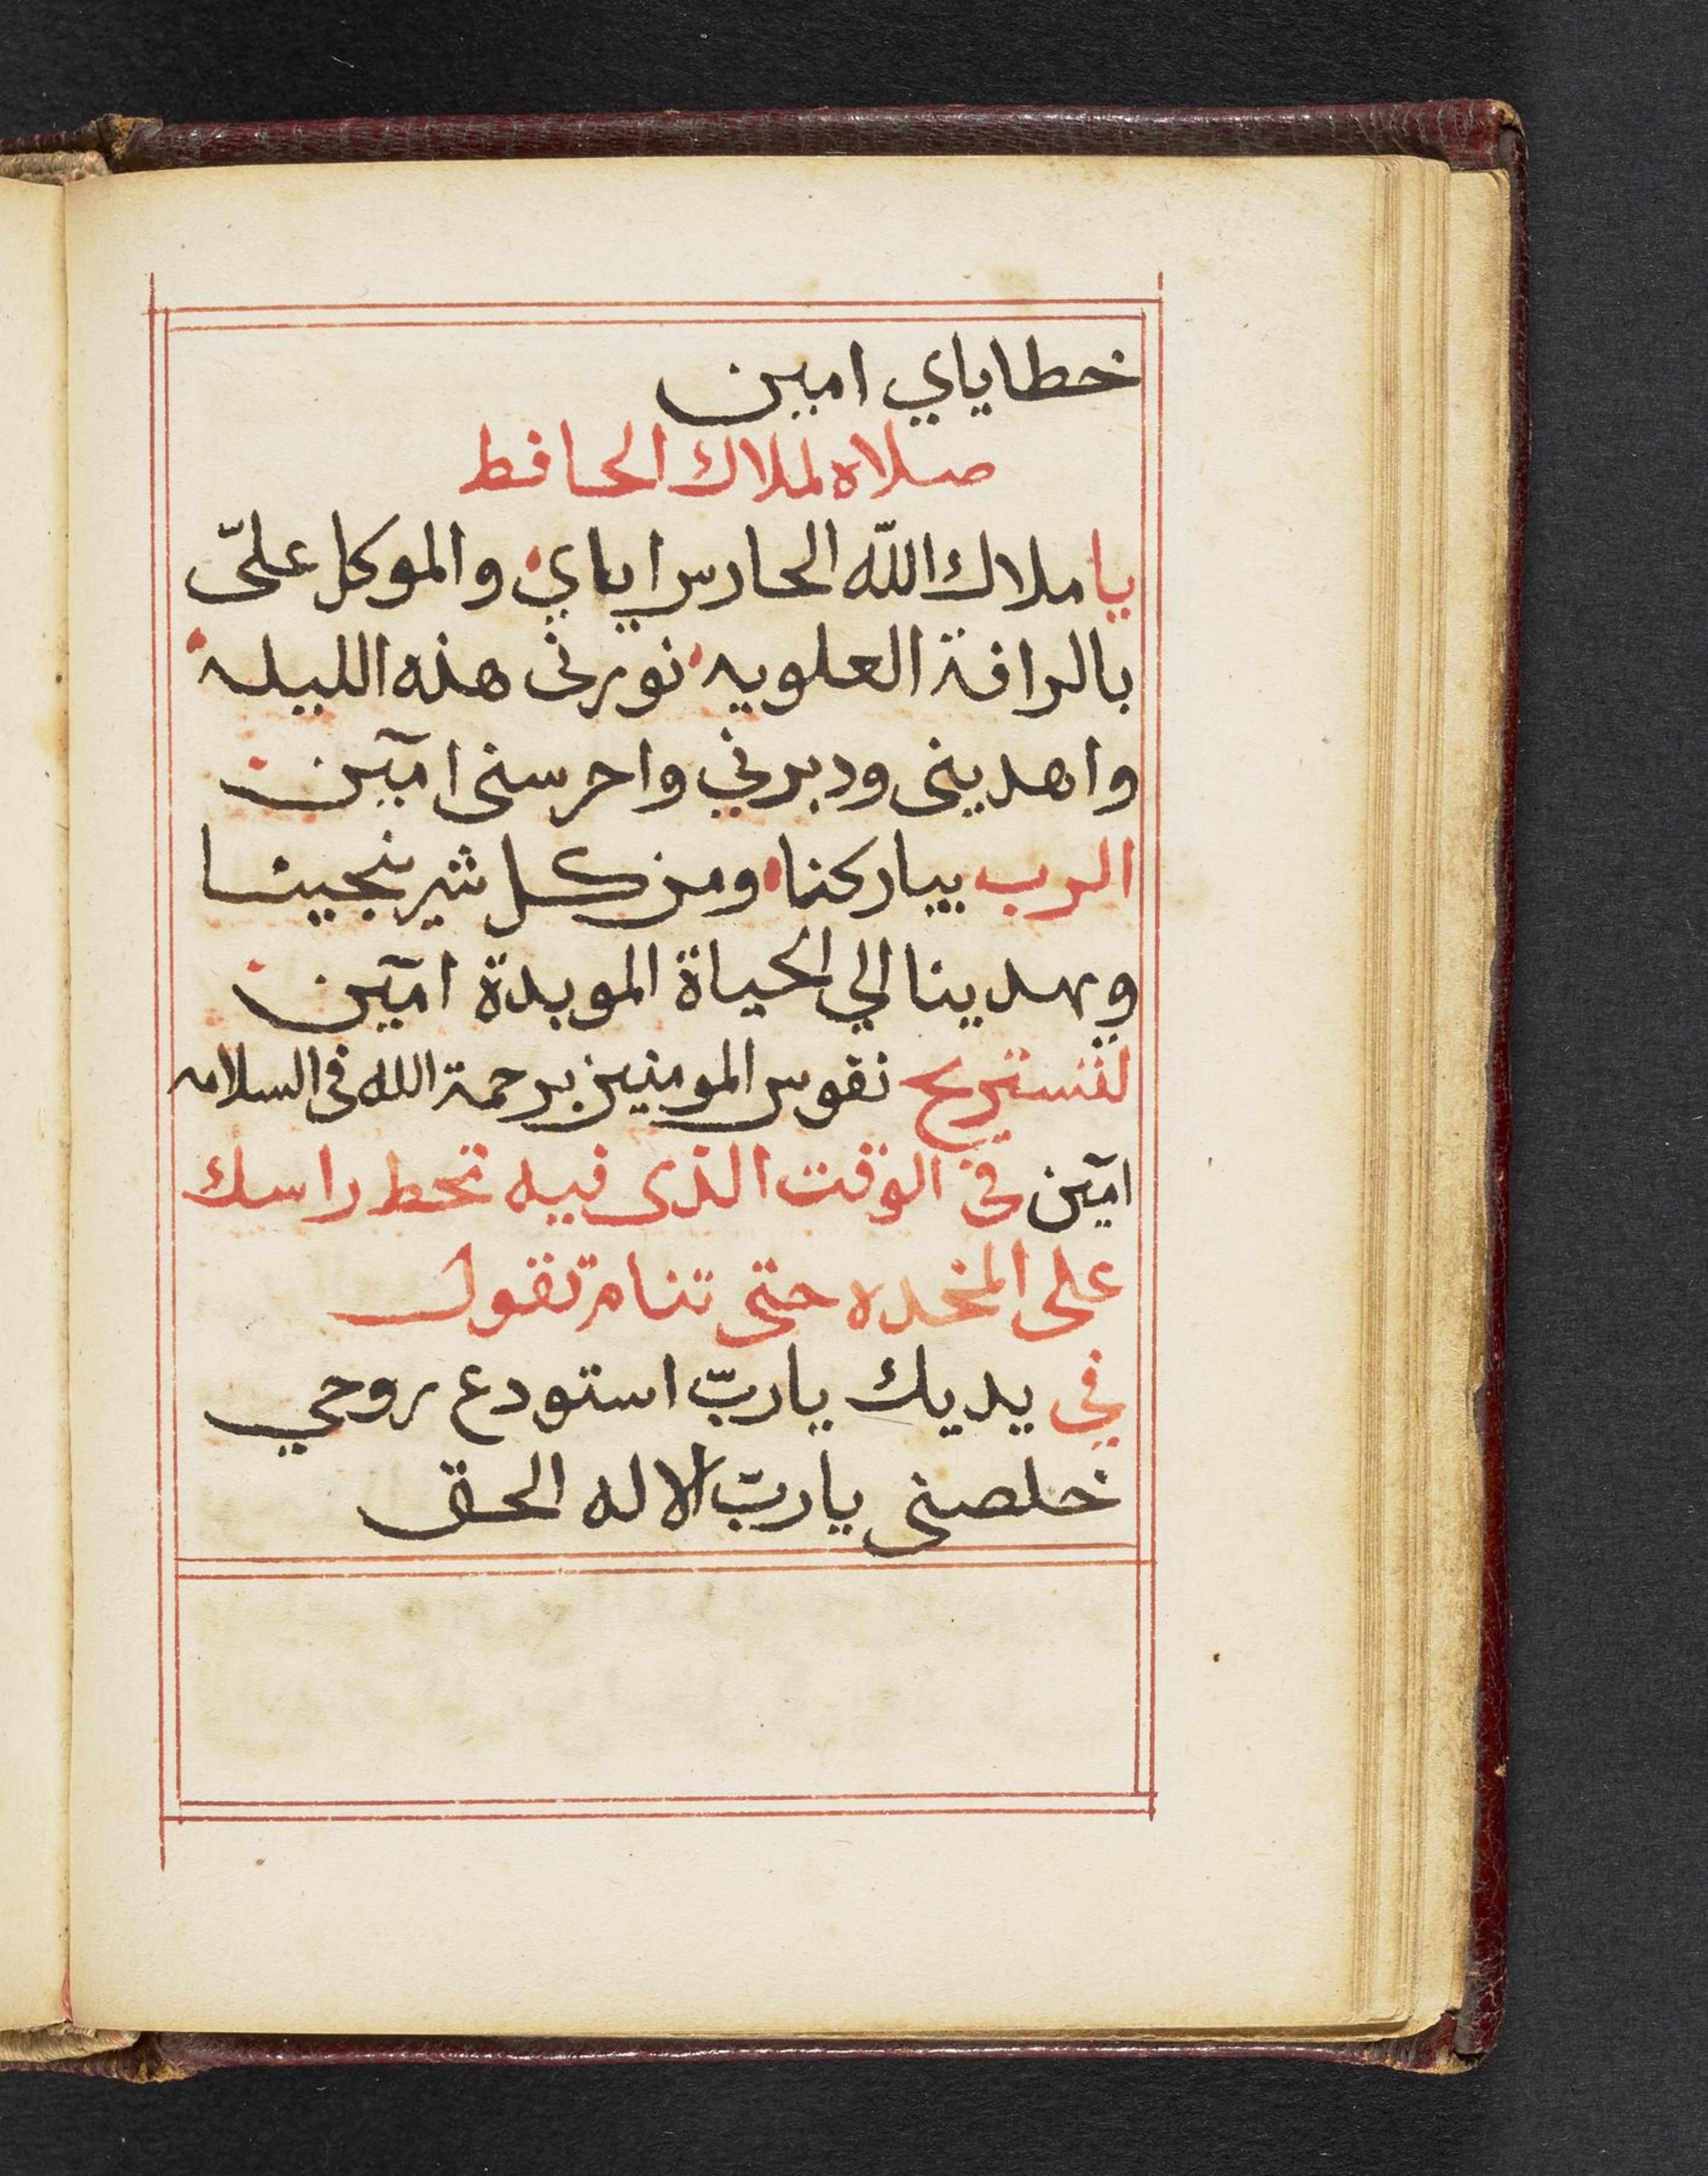 خطاياي امين
صلاه لملاك الحافط
يا ملاك اللّه الحارس اياي والموكل عليّ
بالرافة العلويه نورنى هذه الليله
واهدينى ودبرني واحرسنى امين
الرب يباركنا ومن كل شر ينجينا
ويهدينا الي الحياة الموبدة امين
لتستريح نفوس المومنين برحمة الله فى السلامه
امين فى الوقت الذى فيه تحط راسك
على المخده حتى تنام تقول
في يديك ياربّ استودع روحي
خلصنى ياربّ الاله الحق